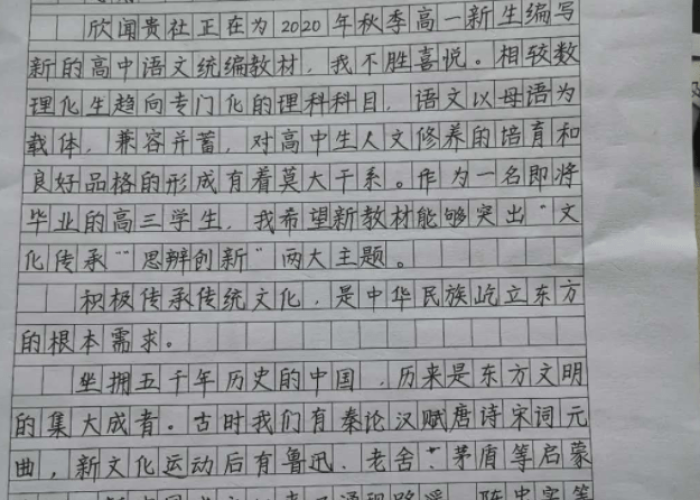 欣闻贵社正在为2020年秋季高一新生编写
新的高中语文统编教材，我不胜喜悦。相较数
理化生趋向专门化的理科科目，语文以母语为
载体，兼容并蓄，对高中生人文修养的培育和
良好品格的形成有着莫大干系。作为一名即将
毕业的高三学生，我希望新教材能够突出“文
化传承”“思辨创新”两大主题。
积极传承传统文化，是中华民族屹立东方
的根本需求。
坐拥五千年历史的中国，历来是东方文明
的集大成者。古时我们有秦论汉赋唐诗宋词元
曲，新文化运动后有鲁迅、老舍、茅盾等启蒙